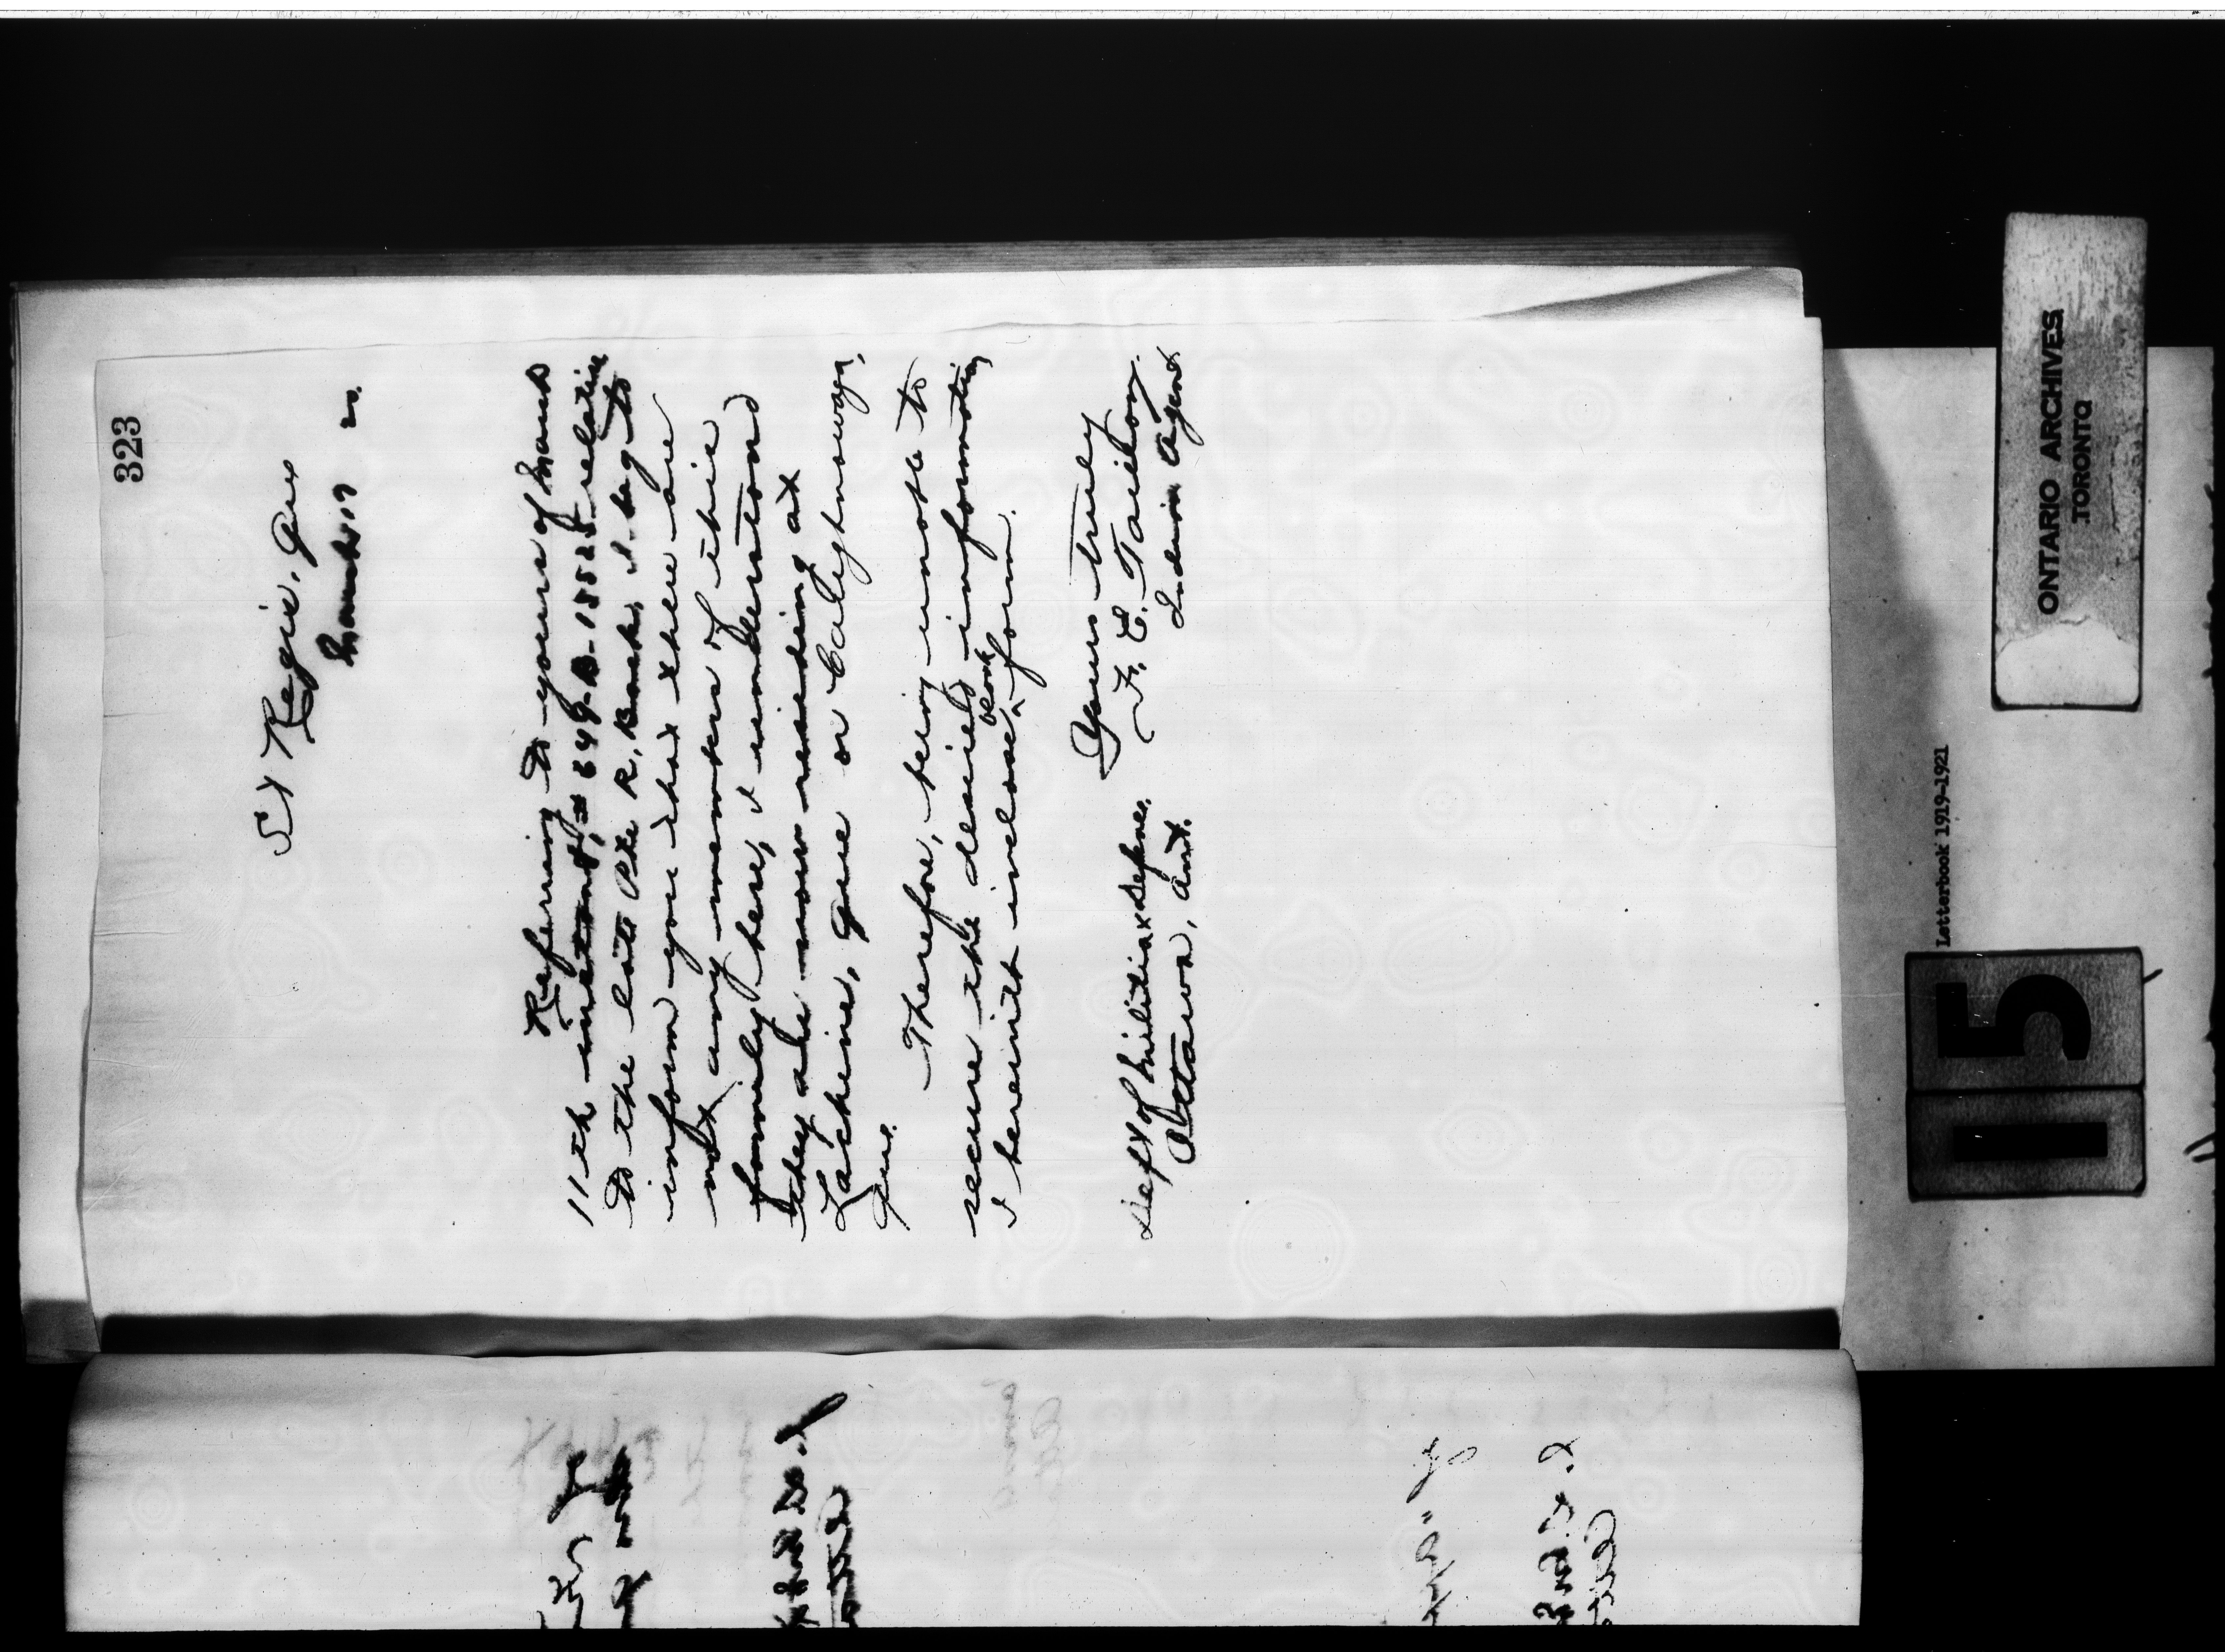 323
St Regis, Que
March 17 20.
Referring to yours of March
11th instant, # 649-B-15525 relative
to the late Pte R. Banks, I beg to
inform you that there are
not any members of this
family here, I understand
they are now residing at
Lachine, Que or Caughnawaga,
Que.
Therefore, being unable to
secure the desired information
blank
I herewith inclose ^ form.
Yours truly
F. E. Taillon.
Indian Agent
Dept of Militia & Defence.
Ottawa, Ont.
ONTARIO ARCHIVES
TORONTO
Letterbook 1919-1921
15